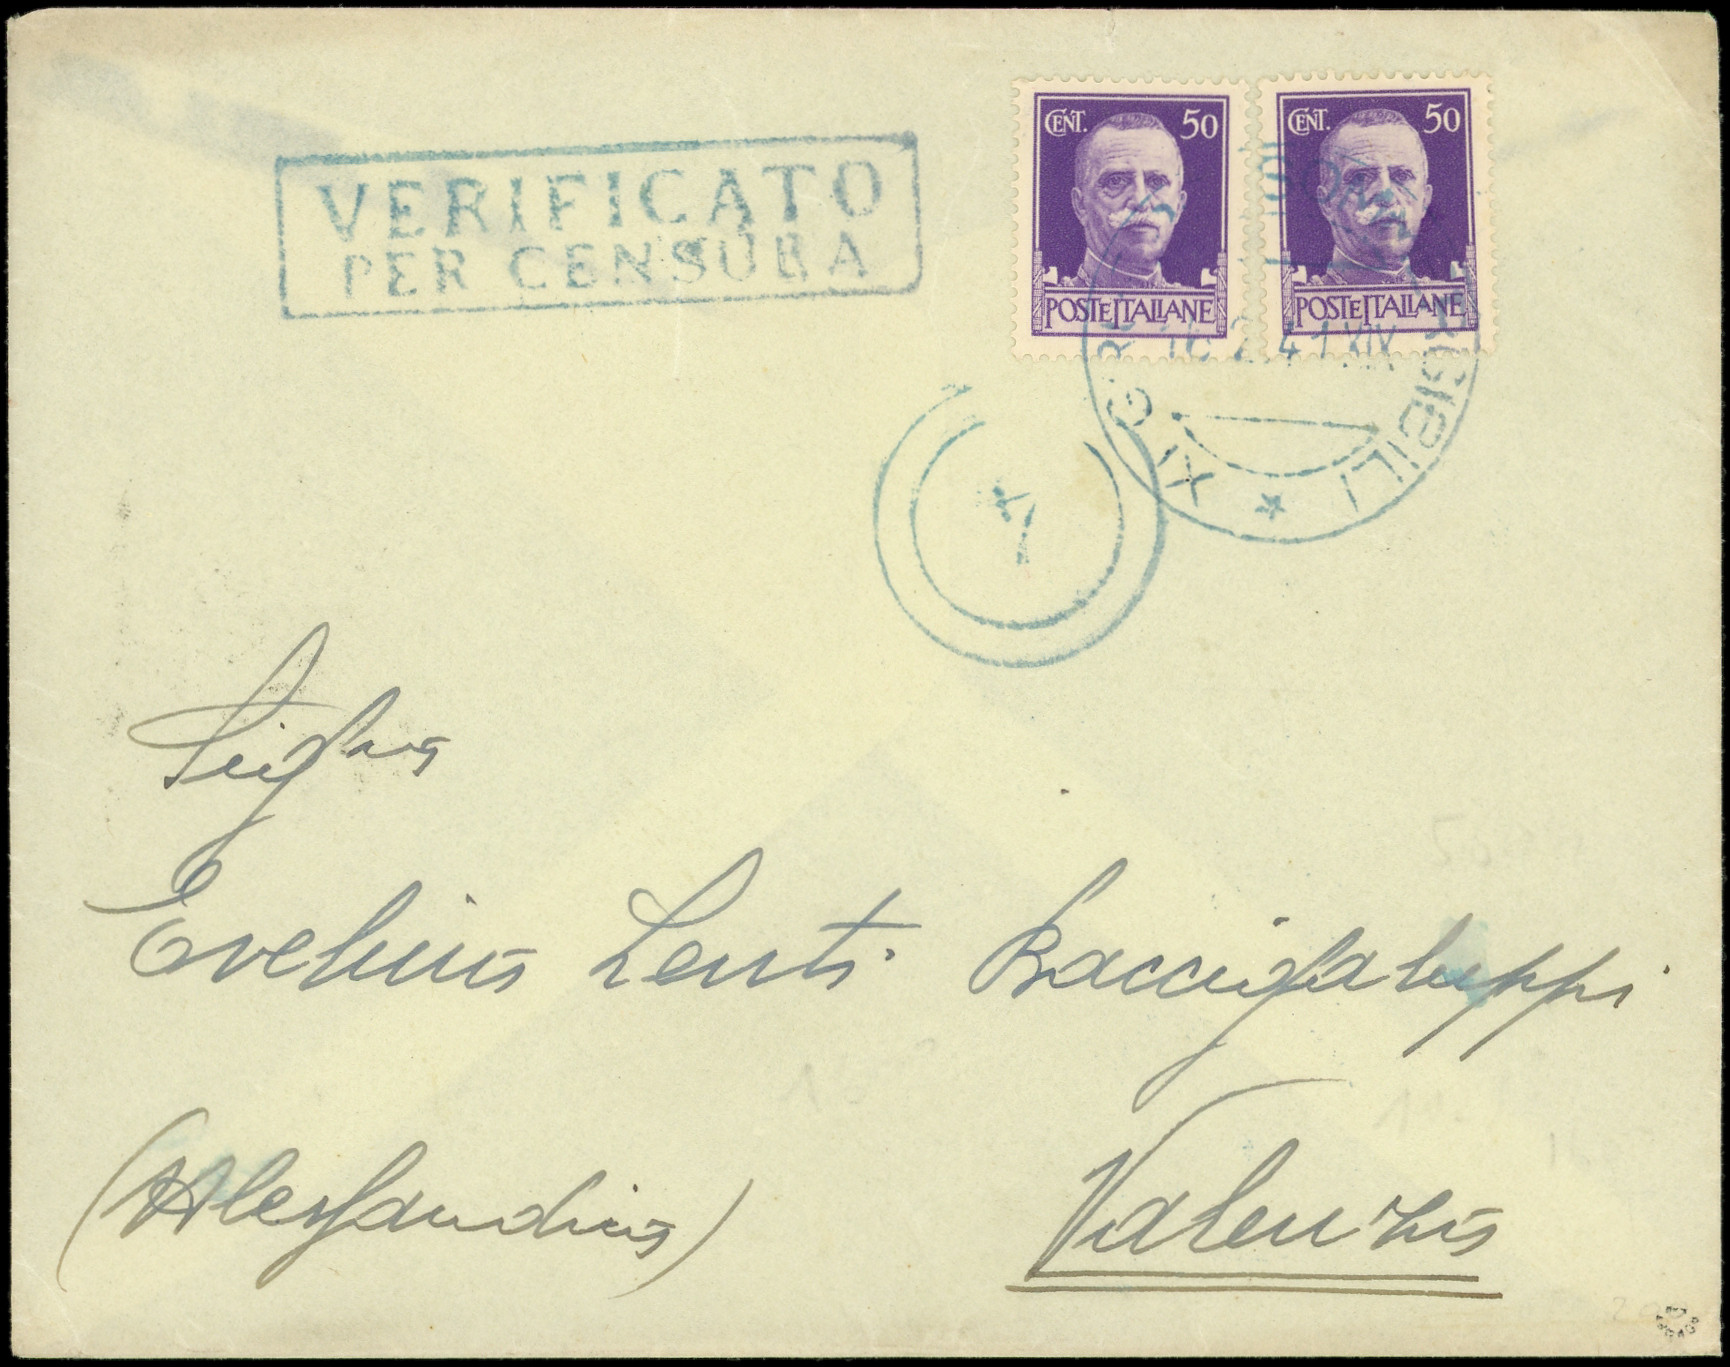 VERIFICATO
PER CENSURA
CENT. 50
POSTE ITALIANE
CENT. 50
POSTE ITALIANE
41 XIX
XI G
Evelina Lenti Baccigaluppi
(Alessandria)
Valenza